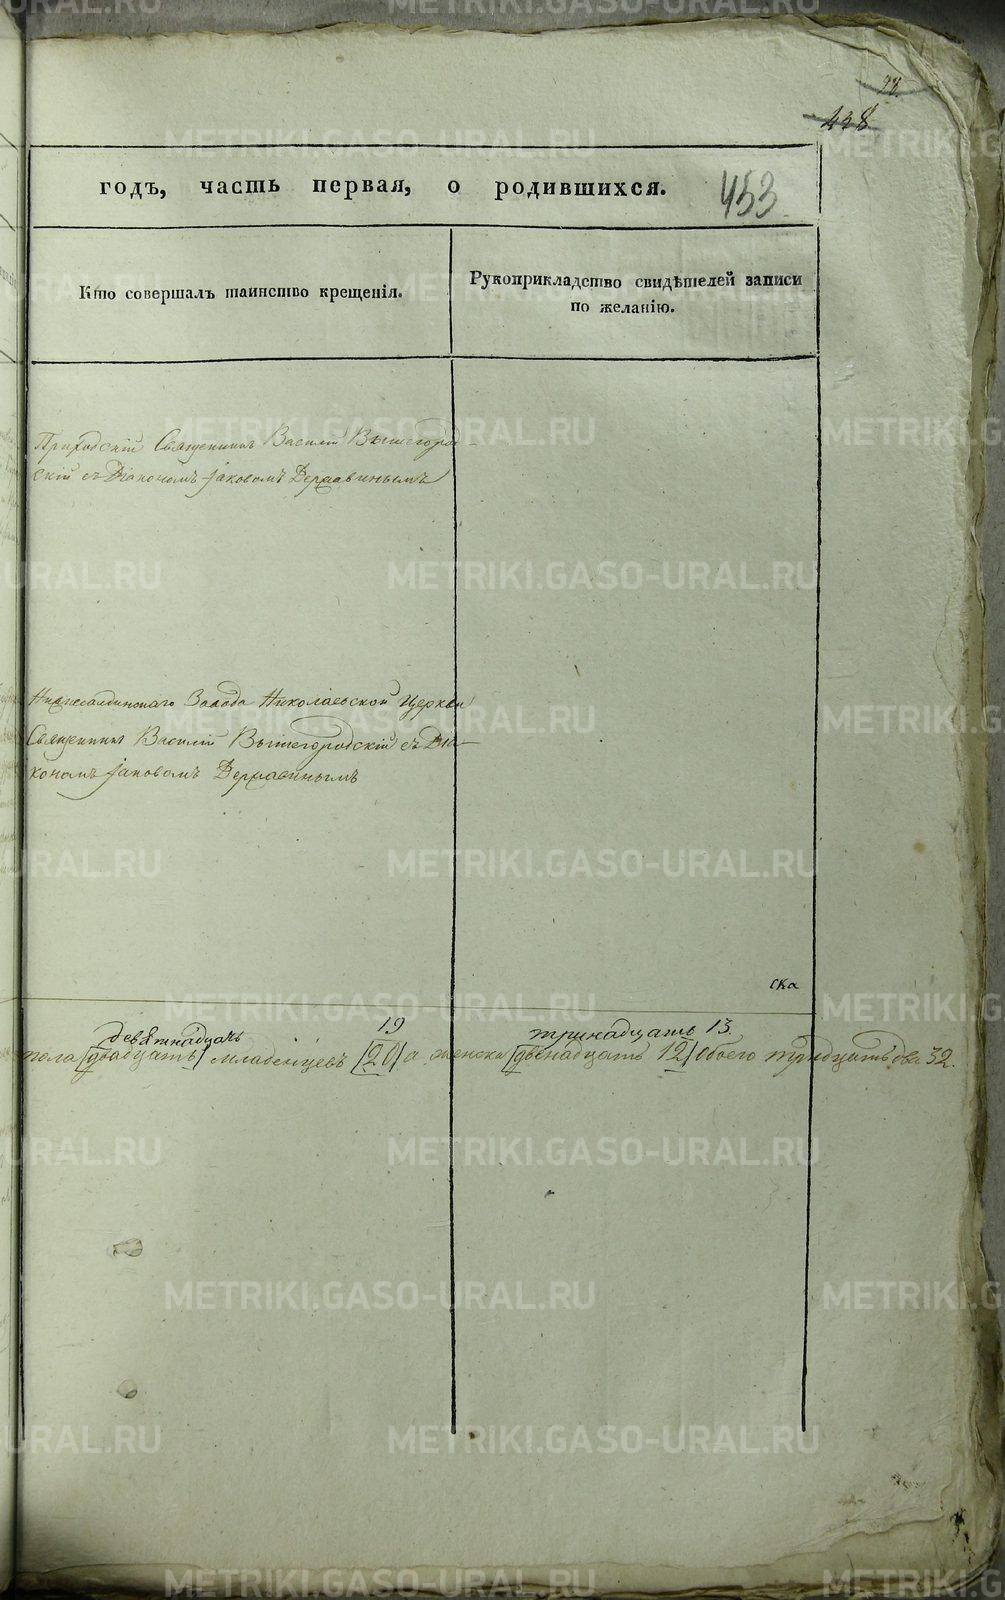 98.
438
годъ, часть первая, о родившихся. 453
Кто совершалъ таинство крещенія.
Рукоприкладство свидѣтелей записи
по желанію.
Приходскій Священникъ Василій Вышегород-
скій съ Діакономъ Іаковомъ Державинымъ
Нижнесалдинскаго Завода Николаевской Церкви
Священникъ Василій Вышегородскій съ Діа-
кономъ Іаковомъ Державинымъ
ска
девѣтнадцать 19 тринадцать 13.
пола двадцать младенцевъ 20 а женска двенадцать 12 обоего тридцать два 32.
METRIKI.GASO-URAL.RU